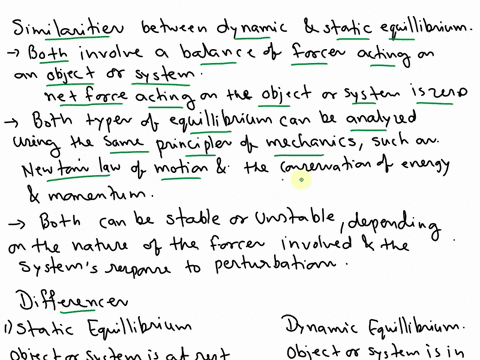 Similarities between dynamic & static equillibrium.
→ Both involve a balance of forces acting on
an object or system.
net force acting on the object or system is zero
→ Both types of equillibrium can be analyzed
using the same principles of mechanics, such as
Newton's law of motion & the conservation of energy
& momentum.
→ Both can be stable or Unstable, depending
on the nature of the forces involved & the
system's response to perturbation.
Differences
1) Static Equillibrium
Dynamic Equillibrium.
Object or system is at rest
Object or system is in